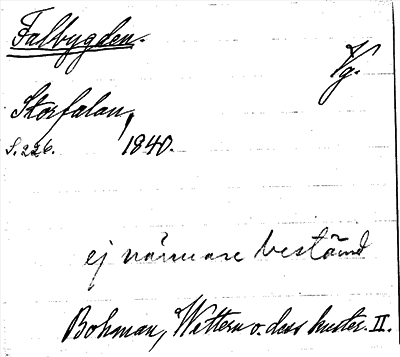 Falbygden.
Vg.
Storfalan,
S. 226. 1840.
ej närmare bestämd
Bohman, Wettern o. dess kuster. II.